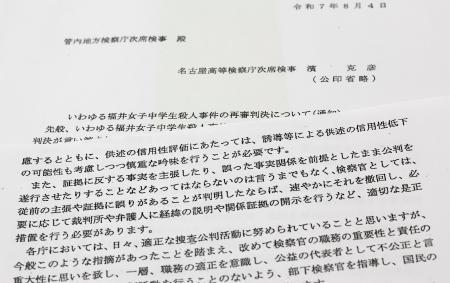 令和7年8月4日
管内地方検察庁次席検事 殿
名古屋高等検察庁次席検事 濱 克彦
(公印省略)
いわゆる福井女子中学生殺人事件の再審判決について(通知)
先般、いわゆる福井女子中学生殺人事件の
慮するとともに、供述の信用性評価にあたっては、誘導等による供述の信用性低下
の可能性も考慮しつつ慎重な吟味を行うことが必要です。
また、証拠に反する事実を主張したり、誤った事実関係を前提としたまま公判を
遂行させたりすることなどあってはならないのは言うまでもなく、検察官としては、
従前の主張や証拠に誤りがあることが判明したならば、速やかにそれを撤回し、必
要に応じて裁判所や弁護人に経緯の説明や関係証拠の開示を行うなど、適切な是正
措置を行う必要があります。
各庁においては、日々、適正な捜査公判活動に努められていることと思いますが、
今般このような指摘があったことを踏まえ、改めて検察官の職務の重要性と責任の
重大性に思いを致し、一層、職務の適正を意識し、公益の代表者として不公正と言
活動を行うことのないよう、部下検察官を指導し、国民の